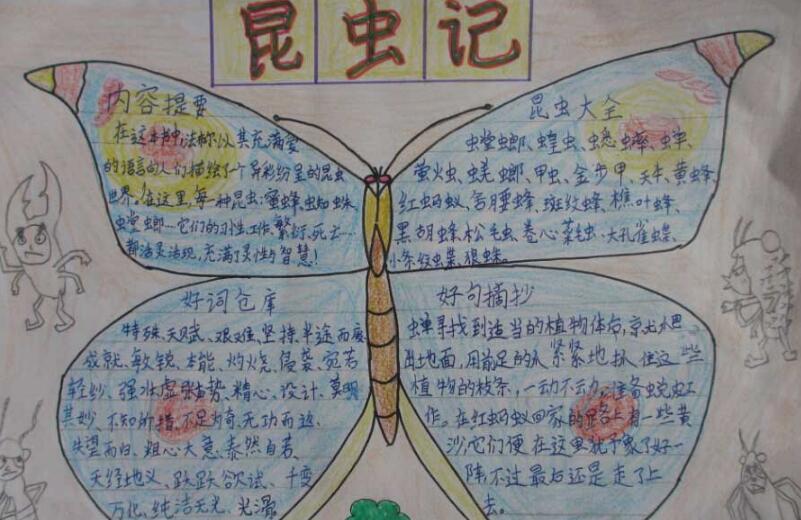 昆虫记
内容提要
在这本书中法布尔以其充满爱
的语言向人们描绘了个异彩纷呈的昆虫
世界。在这里,每一种昆虫:蜜蜂、蜘蛛、
螳螂…它们的习性、工作、繁衍、死亡…
都活灵活现,充满了灵性与智慧!
昆虫大全
螳螂、蝗虫、蟋蟀、蝉、
萤火虫、蜣螂、甲虫、金步甲、天牛、黄蜂、
红蚂蚁、
斑纹蜂、樵叶蜂、
黑胡蜂、松毛虫、卷心菜毛虫、大孔雀蝶、
小条纹蝶、狼蛛。
好词仓库
特殊、天赋、艰难、坚持、半途而废
成就、敏锐、本能、灼烧、侵袭、宛若
轻纱、强壮、虚张声势、精心、设计、莫明
其妙、不知所措、不足为奇、无功而返、
失望而归、粗心大意、泰然自若、
天经地义、跃跃欲试、千变
万化、纯洁无光、光滑
好句摘抄
蝉寻找到适当的植物体后,就爬
出地面,用前足的爪紧紧地抓住这些
植物的枝条,一动不动,准备蜕皮工
作。在红蚂蚁回家的路上有一些黄
沙,它们便在这里犹豫了好一
阵,不过最后还是走了上
去。